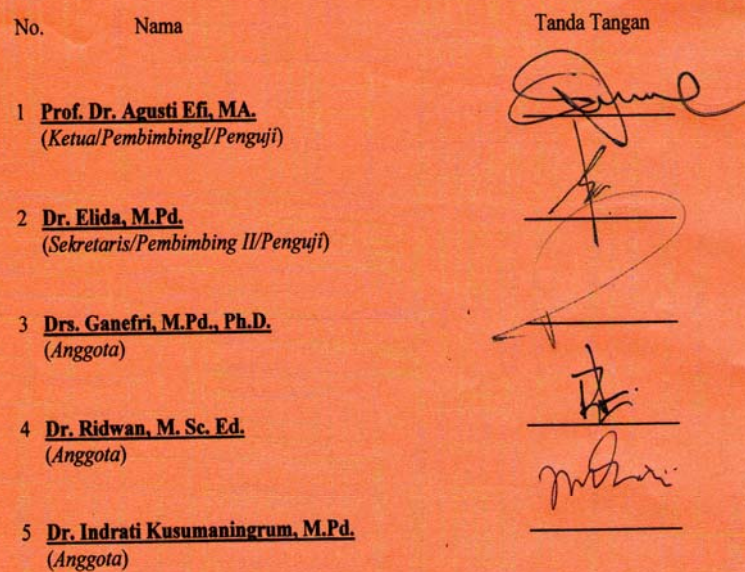 No. Nama Tanda Tangan
1 Prof. Dr. Agusti Efi, MA.
(Ketua/PembimbingI/Penguji)
2 Dr. Elida, M.Pd.
(Sekretaris/Pembimbing II/Penguji)
3 Drs. Ganefri, M.Pd., Ph.D.
(Anggota)
4 Dr. Ridwan, M. Sc. Ed.
(Anggota)
5 Dr. Indrati Kusumaningrum, M.Pd.
(Anggota)